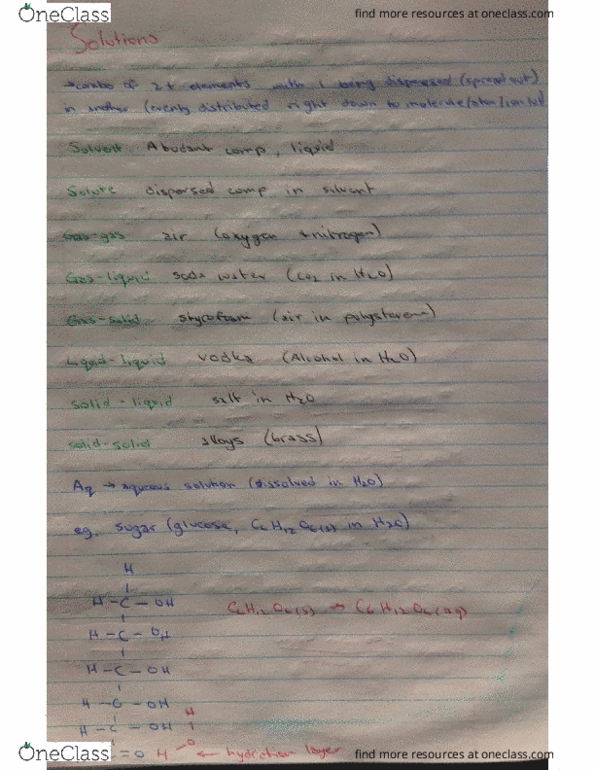 OneClass
find more resources at oneclass.com
Solutions
→ combo of 2+ elements with 1 being dispersed (spread out)
in another (evenly distributed right down to molecule/atom/ion lvl)
Solvent Abudant comp, liquid
Solute dispersed comp in solvent
Gas-gas air (oxygen + nitrogen)
Gas-liquid soda water (CO2 in H2O)
Gas-solid styrofoam (air in polysterene)
Liquid-liquid vodka (Alcohol in H2O)
solid-liquid salt in H2O
solid-solid alloys (brass)
Aq → aqueous solution (dissolved in H2O)
eg. sugar (glucose, C6H12O6(s) in H2O)
H
H-C-OH
C6H12O6(s) → C6H12O6(aq)
H-C-OH
H-C-OH
H-C-OH
H
H-C-OH
=O H-O ← hydration layer
OneClass
find more resources at oneclass.com